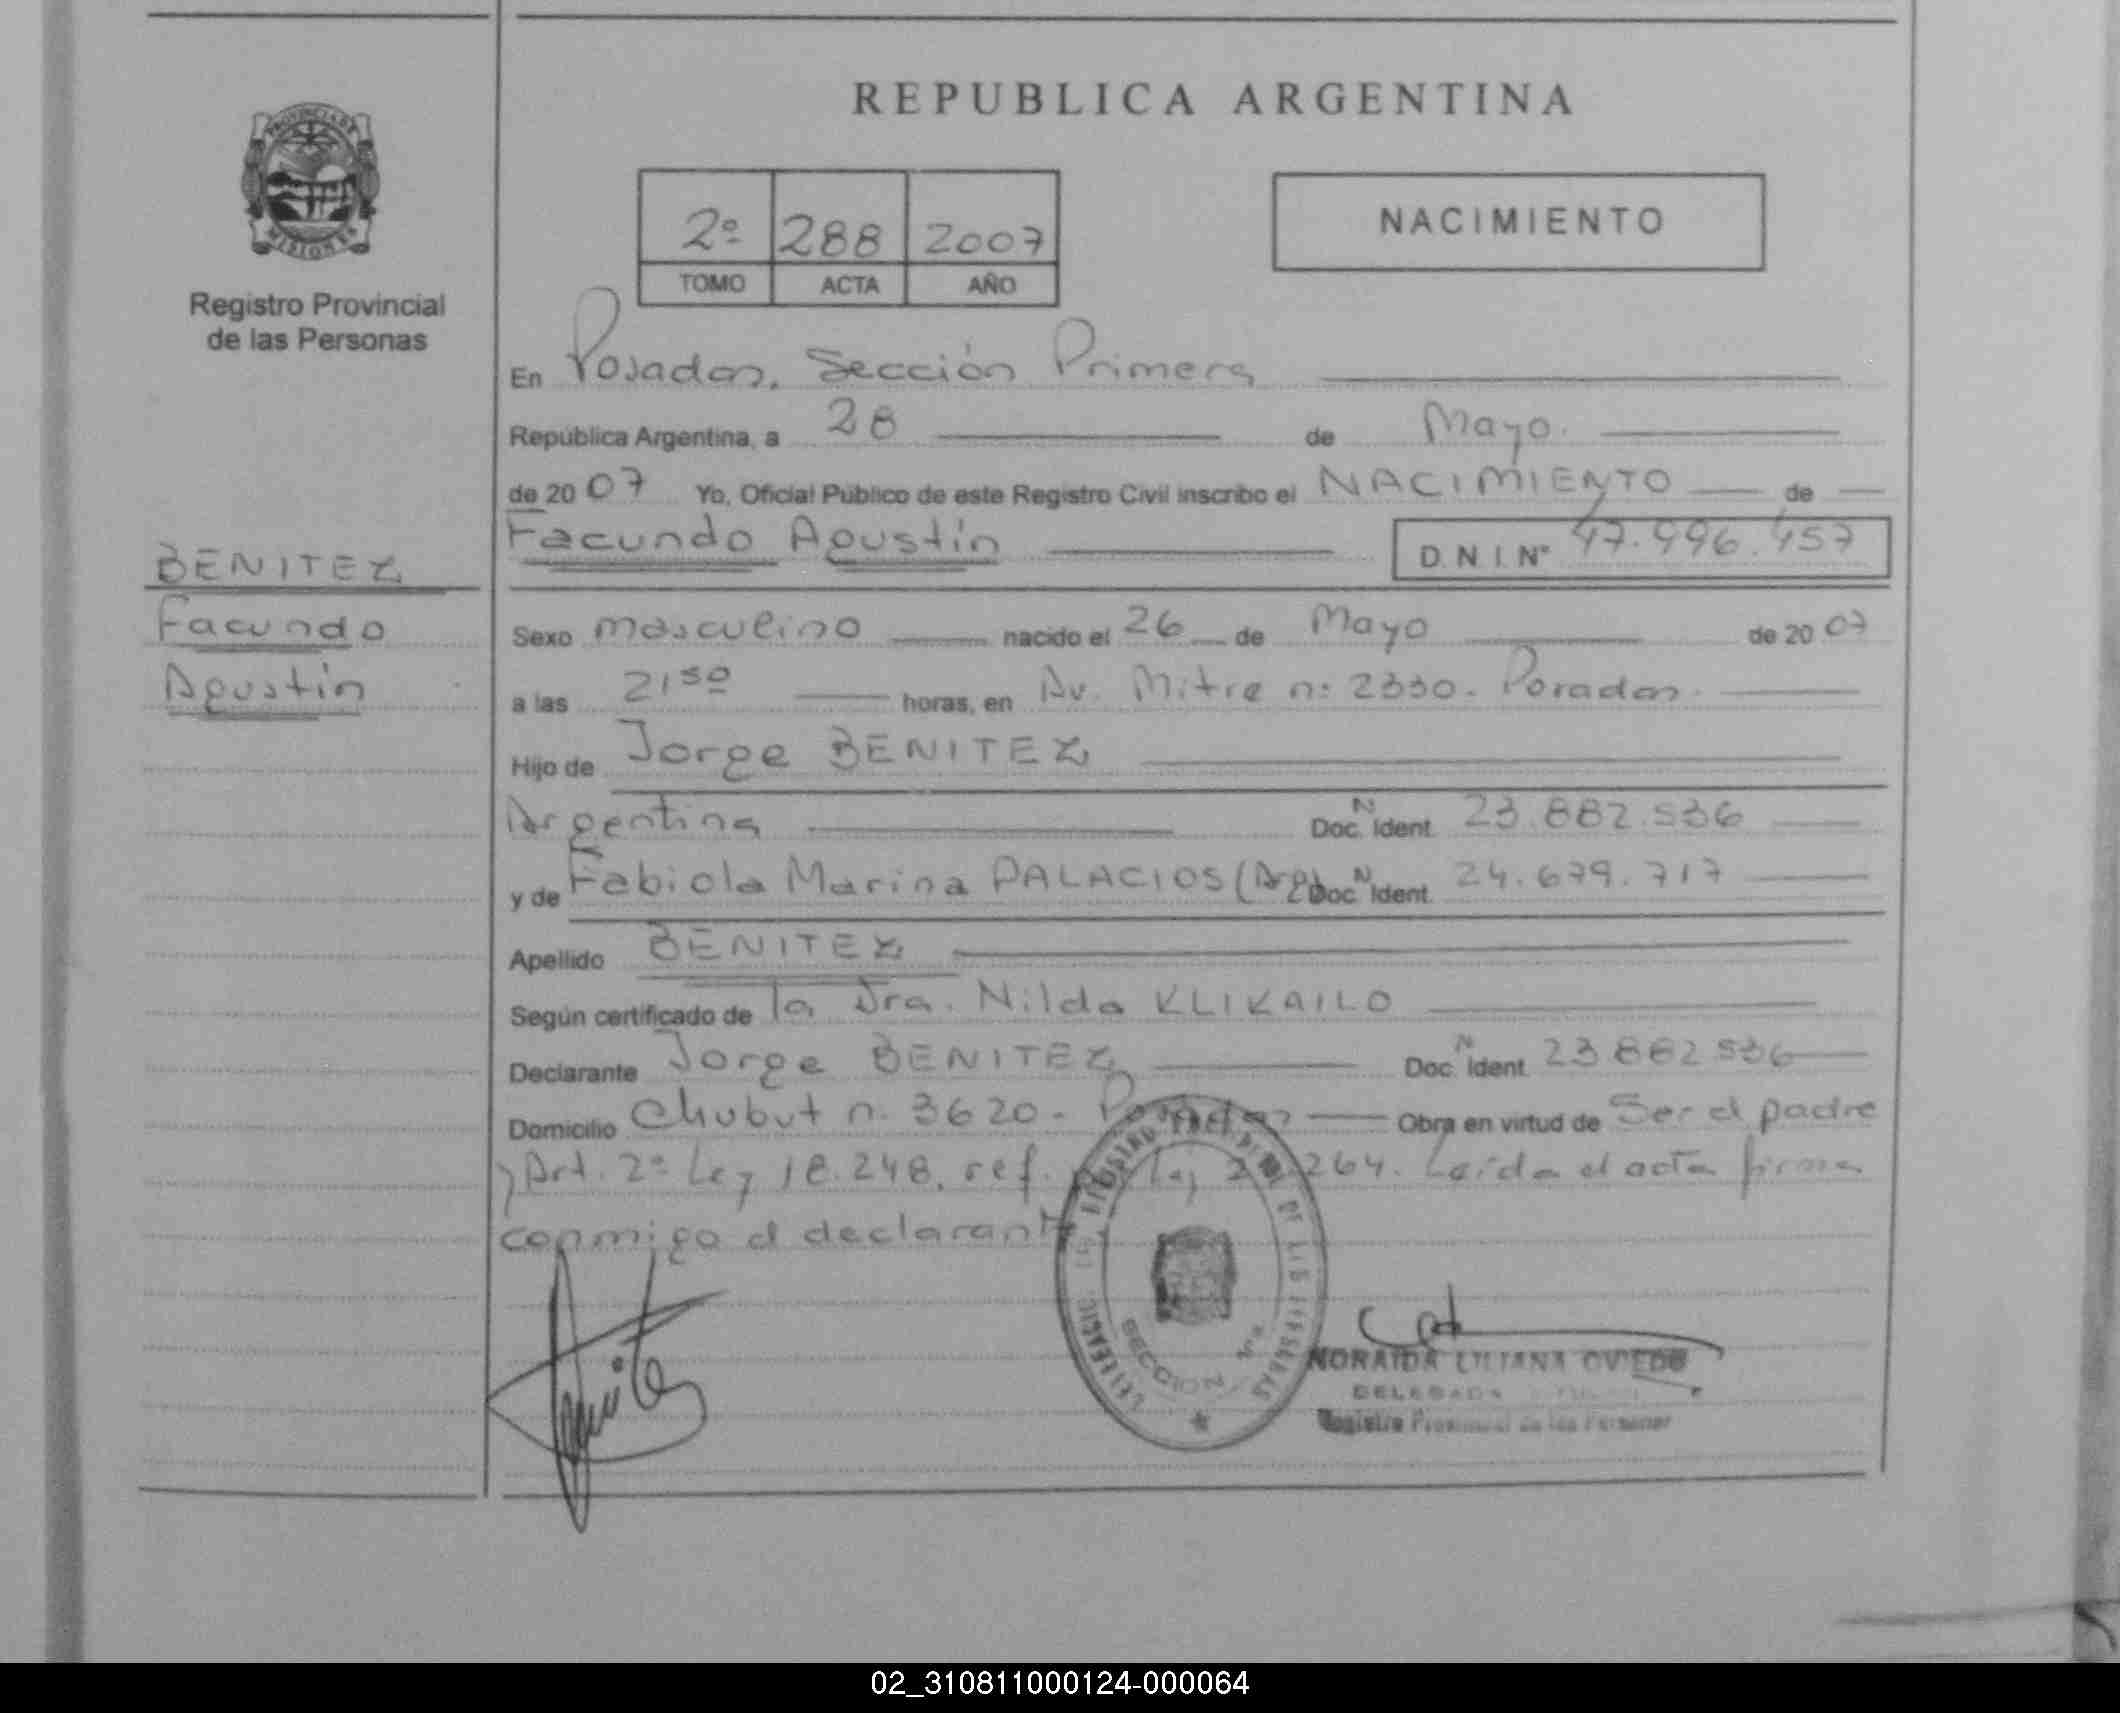 REPUBLICA ARGENTINA
PROVINCIA DE
MISIONES
Registro Provincial
de las Personas
2º 288 2007
TOMO ACTA AÑO
NACIMIENTO
En Posadas, Sección Primera
República Argentina, a 28 de Mayo.
de 2007 Yo, Oficial Público de este Registro Civil inscribo el NACIMIENTO de
Facundo Agustín D.N.I. Nº 47.996.457
BENITEZ
Facundo
Agustín
Sexo masculino nacido el 26 de Mayo de 2007
a las 21 50 horas, en Av. Mitre nº 2330. Posadas.
Hijo de Jorge BENITEZ
Argentina Doc. N Ident. 23.882.536
y de Fabiola Marina PALACIOS (Arg) Doc. N Ident. 24.679.717
Apellido BENITEZ
Según certificado de la Dra. Nilda KLIKAILO
Declarante Jorge BENITEZ Doc. N Ident. 23.882.536
Domicilio Chubut n. 3620- Posadas Obra en virtud de Ser el padre
y Art. 2º Ley 18.248, ref. Ley 264. Leída el acta firma
conmigo el declarante
SECCION 1ra
NORAIDA LILIANA OVIEDO
DELEGADA
Registro Provincial de las Personas
02_310811000124-000064